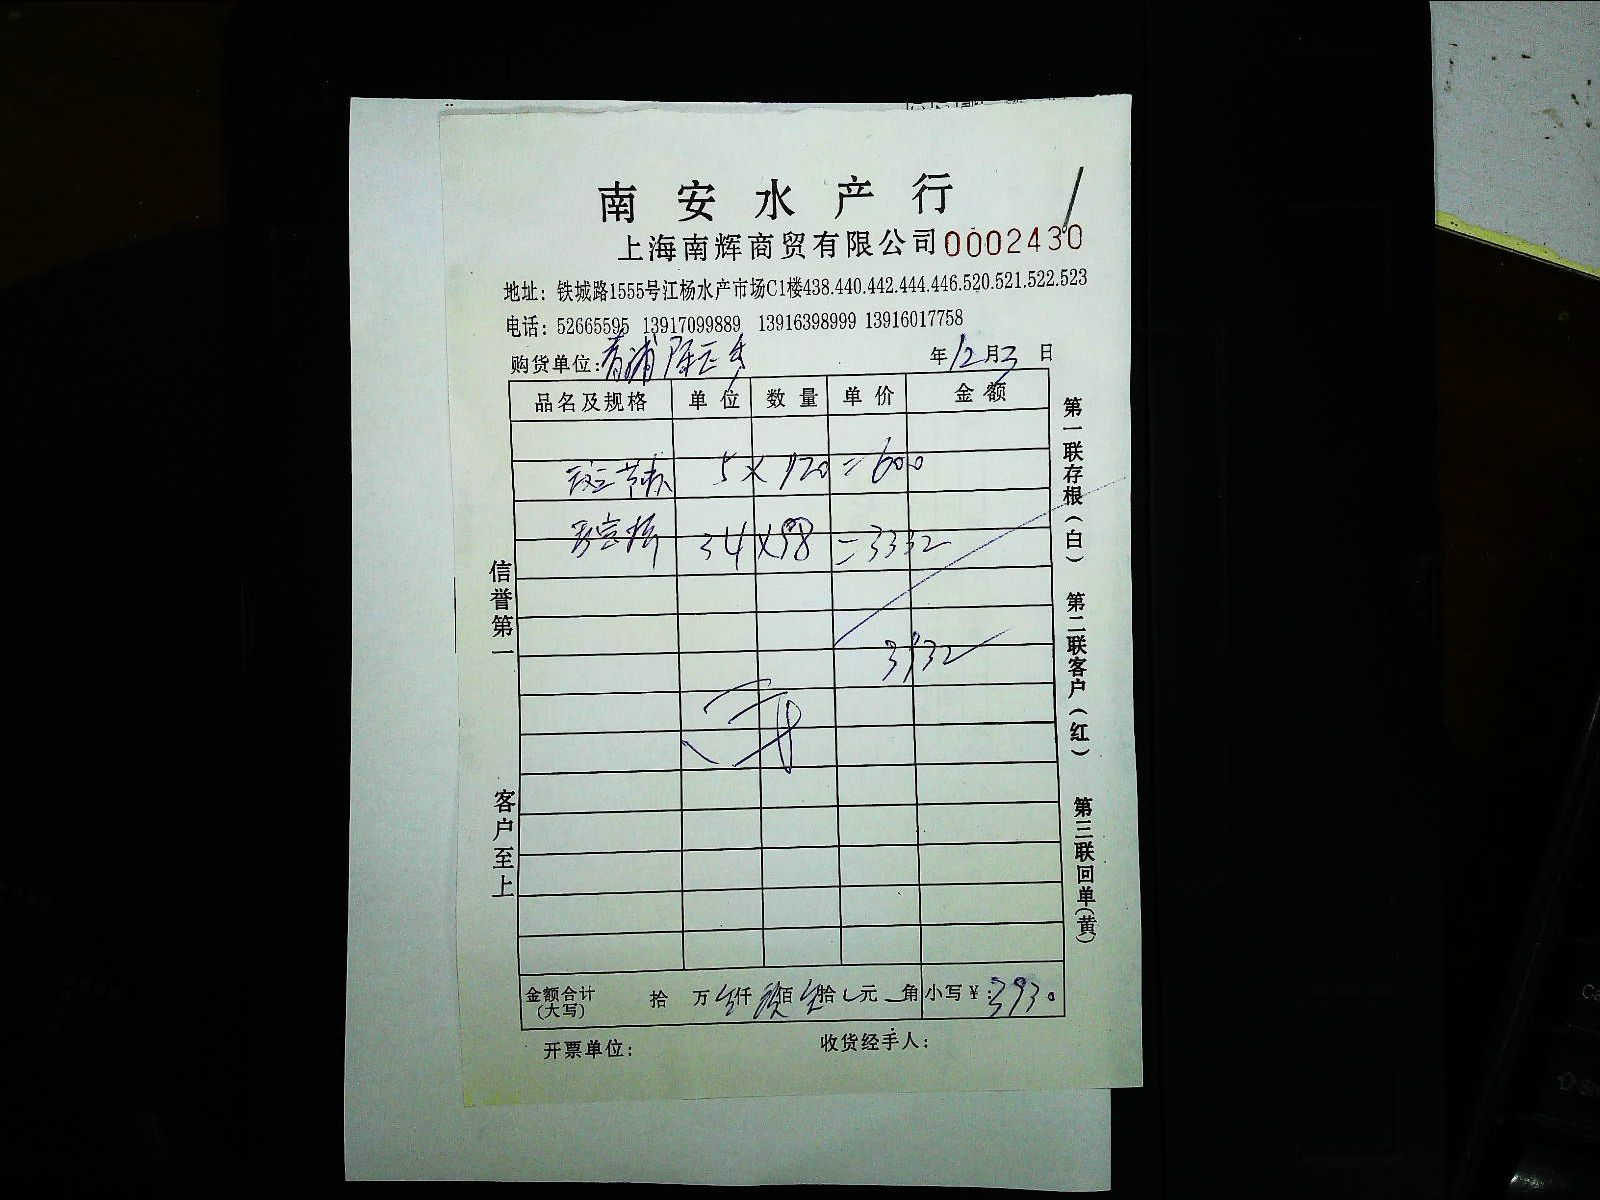 南安水产行
上海南辉商贸有限公司 0002430
地址：铁城路1555号江杨水产市场C1楼438.440.442.444.446.520.521.522.523
电话：52665595 13917099889 13916398999 13916017758
购货单位：青浦 年12月3日
品名及规格 单位 数量 单价 金额
5×120=600
34×98=3332
3932
金额合计(大写) 拾 万 仟 佰 拾 元 角 小写￥：3930
开票单位： 收货经手人：
信誉第一
客户至上
第一联存根(白)
第二联客户(红)
第三联回单(黄)